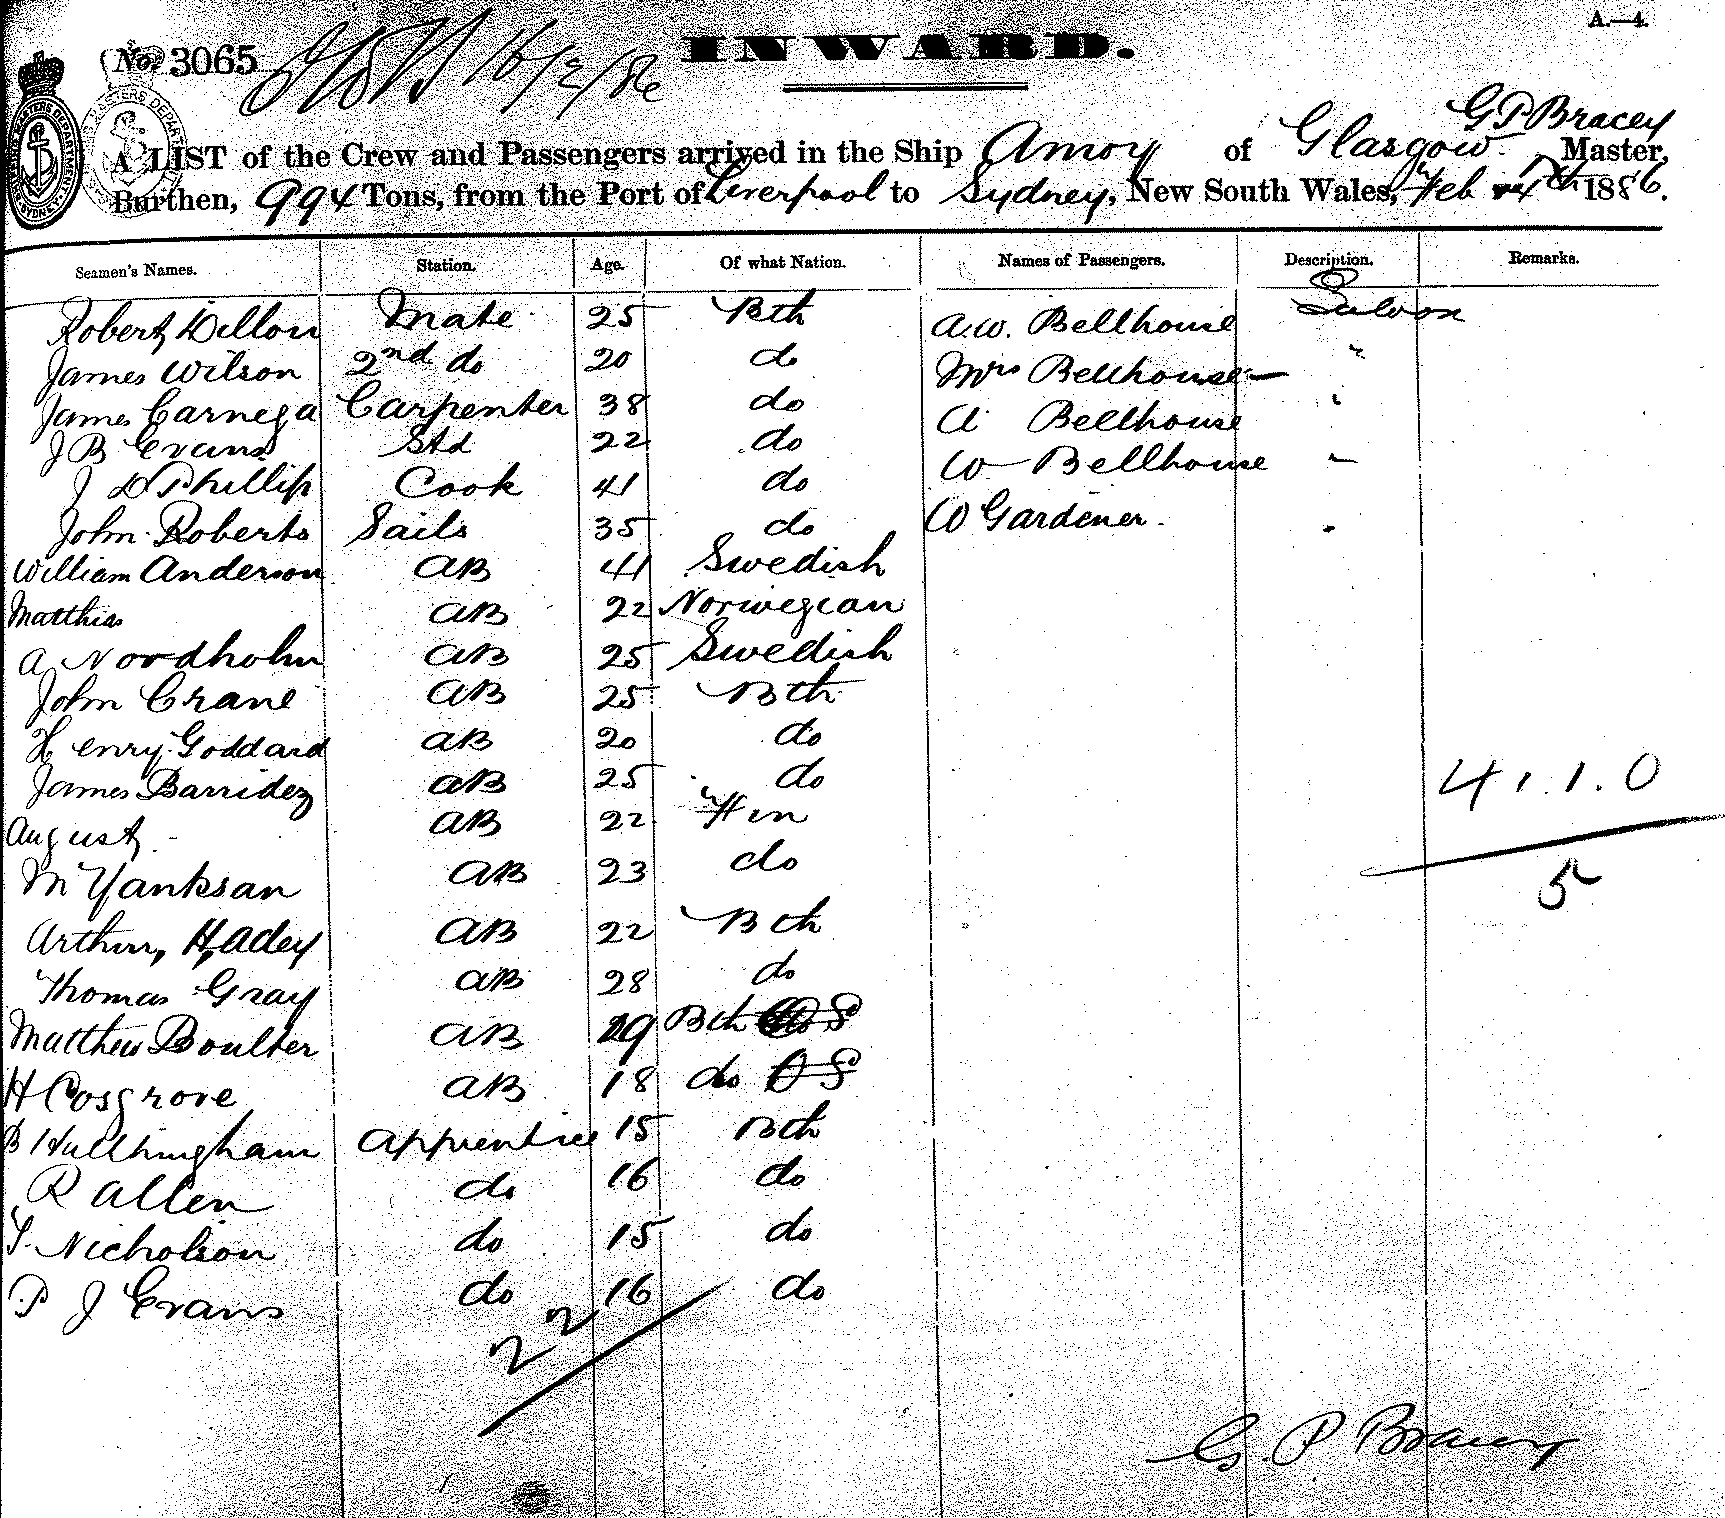 A.—4.
No. 3065 16/2/86 INWARD.
G P Bracey
A LIST of the Crew and Passengers arrived in the Ship Amoy of Glasgow Master,
Burthen, 994 Tons, from the Port of Liverpool to Sydney, New South Wales, Feb 1886.
Seamen's Names. Station. Age. Of what Nation. Names of Passengers. Description. Remarks.
Robert Dillon Mate 25 Bth A.W. Bellhouse Saloon
James Wilson 2nd do 20 do Mrs Bellhouse "
James Carnega Carpenter 38 do A Bellhouse "
J B Evans Std 22 do W Bellhouse "
J D Phillips Cook 41 do W Gardener "
John Roberts Sails 35 do
William Anderson AB 41 Swedish
Matthias AB 22 Norwegian
A Noordholm AB 25 Swedish
John Crane AB 25 Bth
Henry Goddard AB 20 do
James Barridez AB 25 do 4.1.0
August AB 22 Fin
M Yanksan AB 23 do 5
Arthur Hadey AB 22 Bth
Thomas Gray AB 28 do
Matthew Boulter AB 19 Bth
H Cosgrove AB 18 do OS
B Hullhingham Apprentice 15 Bth
R Allen do 16 do
T. Nicholson do 15 do
P J Evans do 16 do
22
G. P Bracey